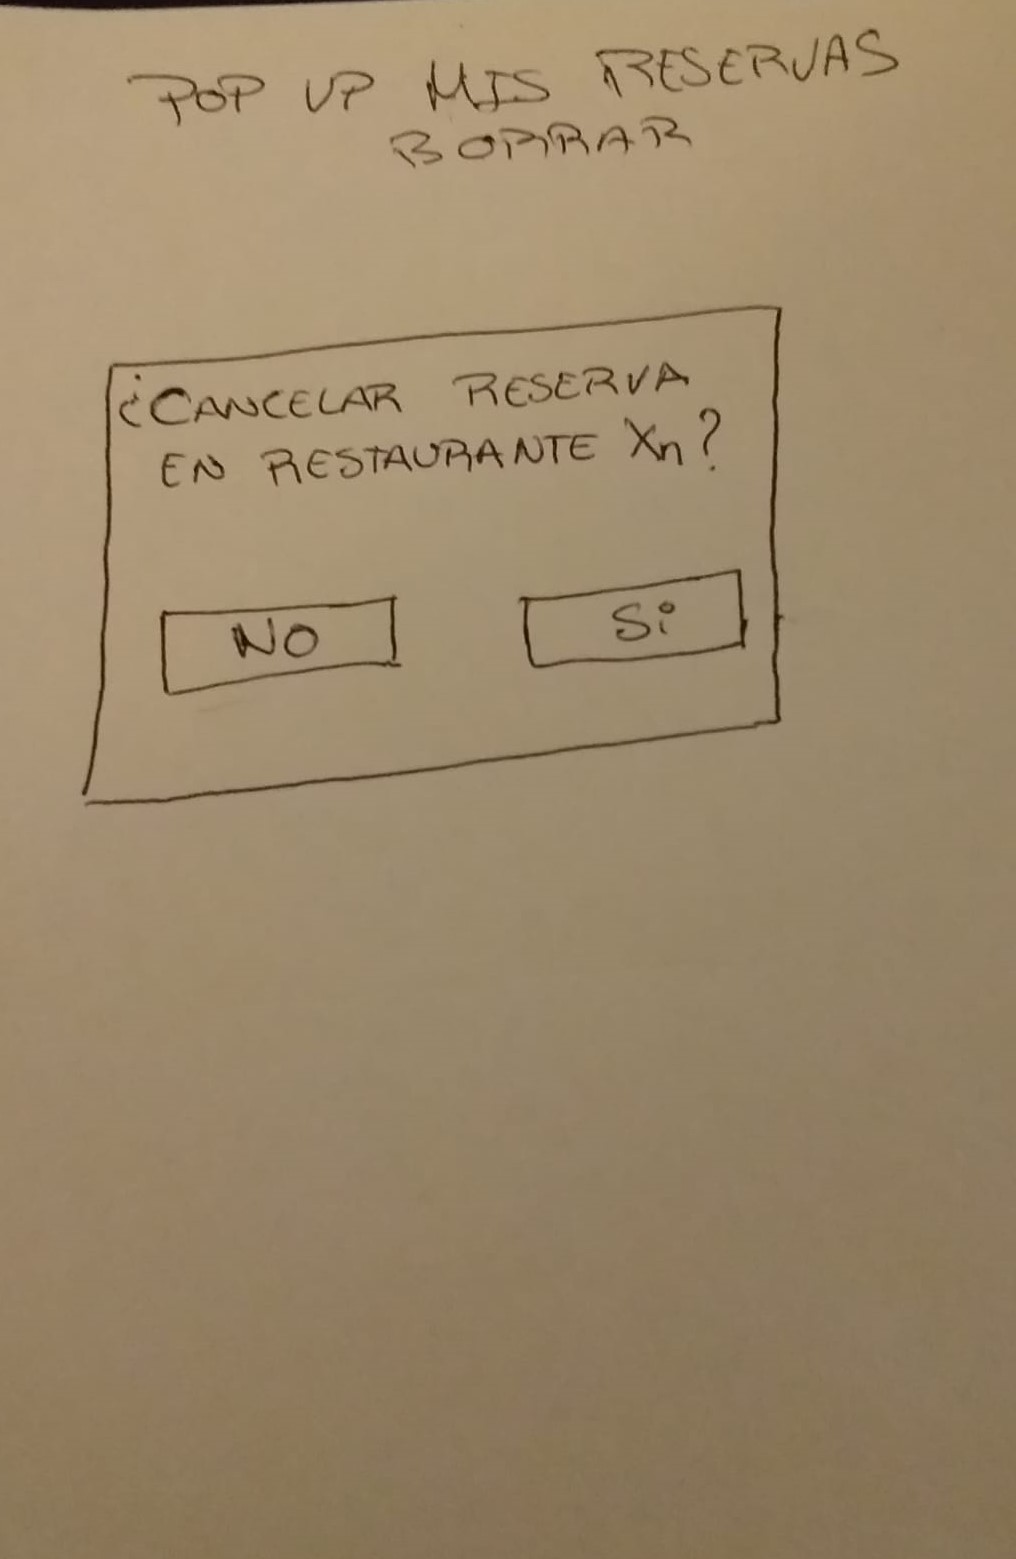 POP UP MIS RESERVAS
BORRAR
¿CANCELAR RESERVA
EN RESTAURANTE Xn?
NO
Si